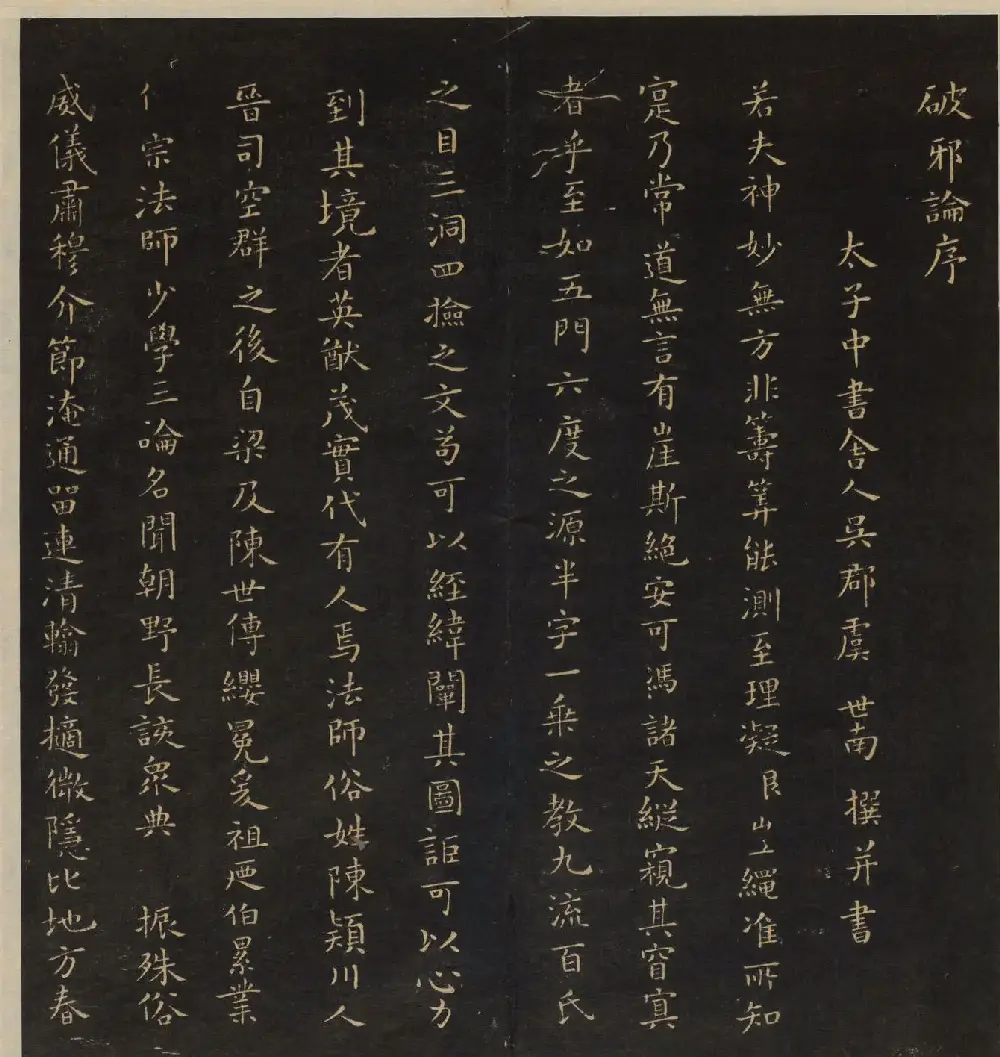 破邪論序
太子中書舍人吳郡虞世南撰并書
若夫神妙無方非籌筭能測至理凝 繩准所知
寔乃常道無言有崖斯絕安可馮諸天縱窺其窅寘
者乎至如五門六度之源半字一乘之教九流百氏
之目三洞四撿之文苟可以經緯闡其圖詎可以心力
到其境者英猷茂實代有人焉法師俗姓陳潁川人
晉司空群之後自梁及陳世傳纓冕爰祖 伯累業
宗法師少學三論名聞朝野長該眾典 振殊俗
威儀肅穆介節淹通留連清翰發擿微隱比地方春